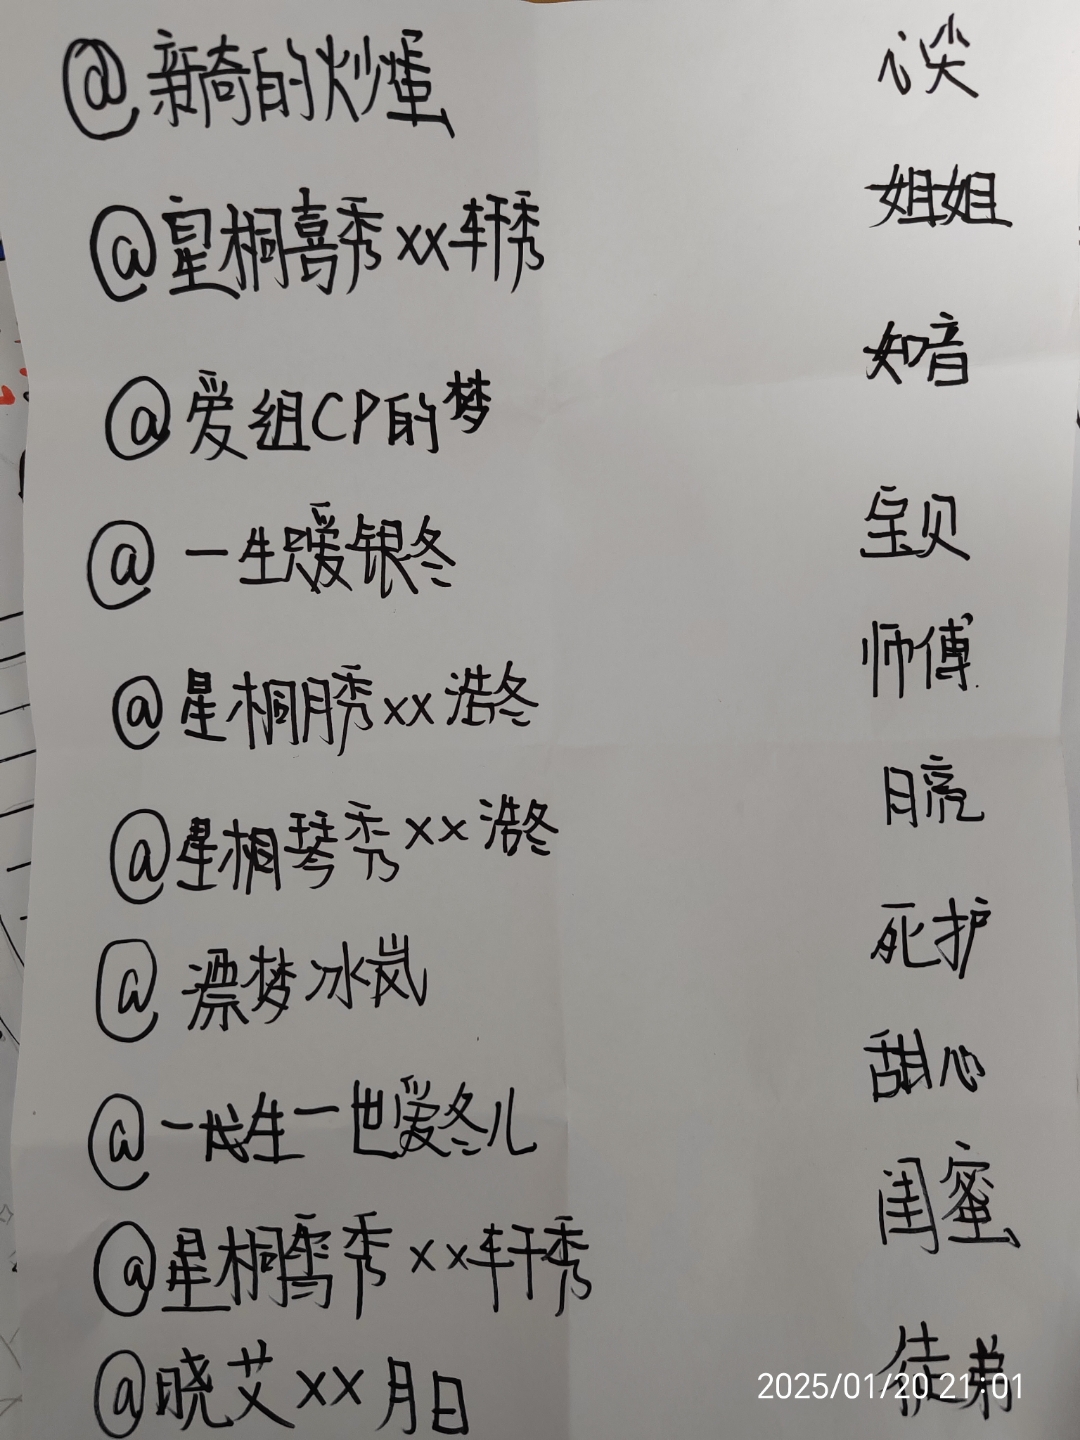 @新奇的炒蛋 心尖
@星桐喜秀xx轩秀 姐姐
@爱组CP的梦 知音
@一生只爱银冬 宝贝
@星桐月秀xx浩冬 师傅
@星桐琴秀xx浩冬 月亮
@漂梦冰岚 死护
@一代生一世爱冬儿 甜心
@星桐雪秀xx轩秀 闺蜜
@晓艾xx月日 徒弟
2025/01/20 21:01